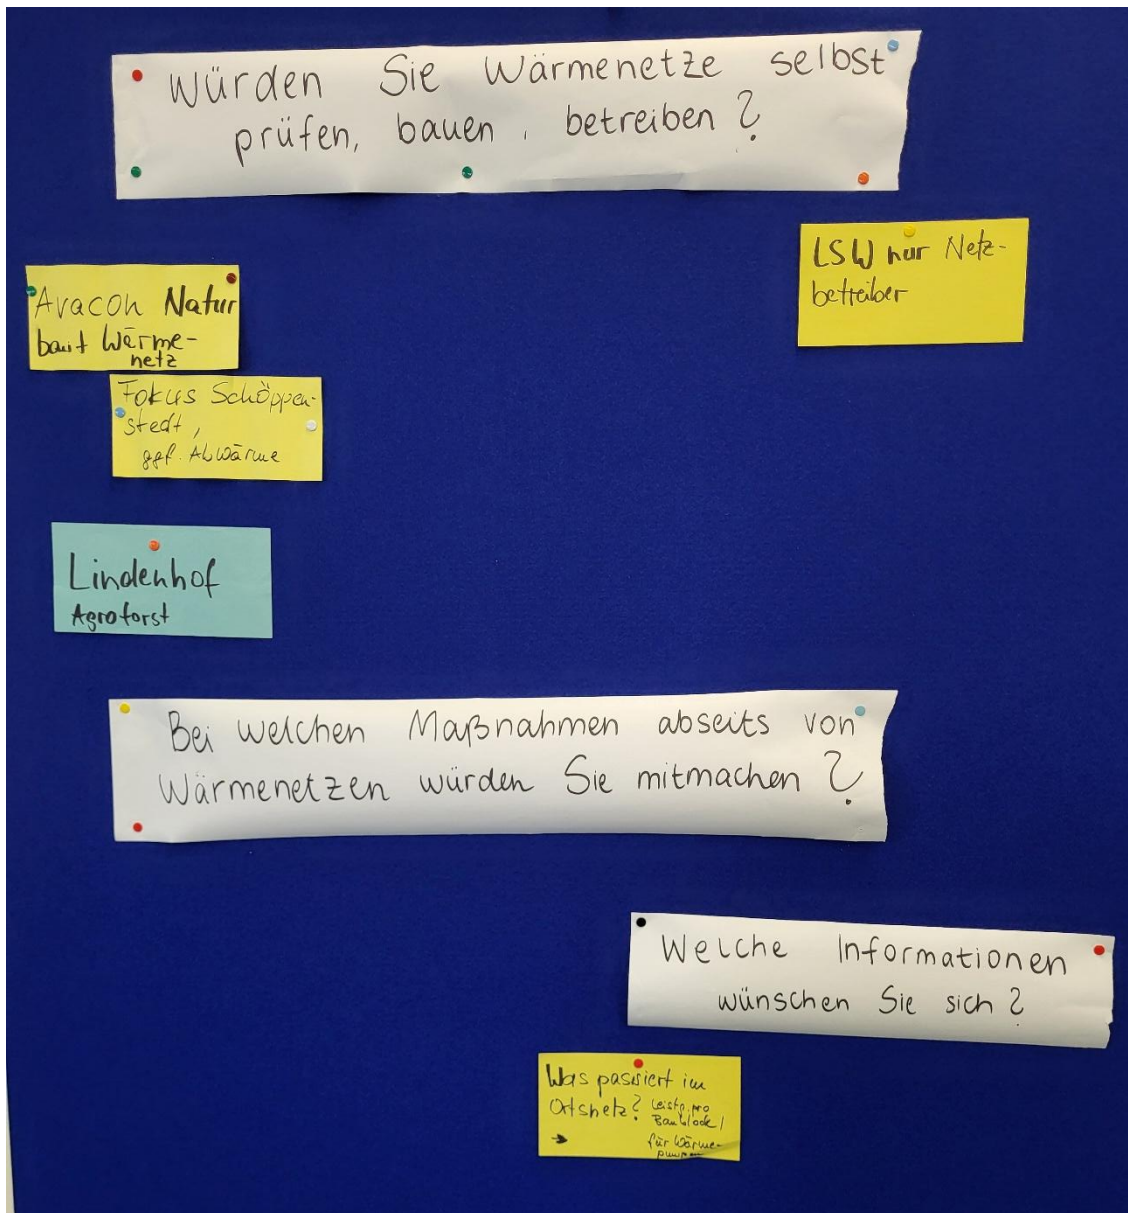 Würden Sie Wärmenetze selbst
prüfen, bauen, betreiben?
LSW nur Netz-
betreiber
Avacon Natur
baut Wärme-
netz
Fokus Schöppen-
stedt,
ggf. Abwärme
Lindenhof
Agroforst
Bei welchen Maßnahmen abseits von
Wärmenetzen würden Sie mitmachen?
Welche Informationen
wünschen Sie sich?
Was passiert im
Ortsnetz? Leistg. pro
Baublock /
→ für Wärme-
pumpen